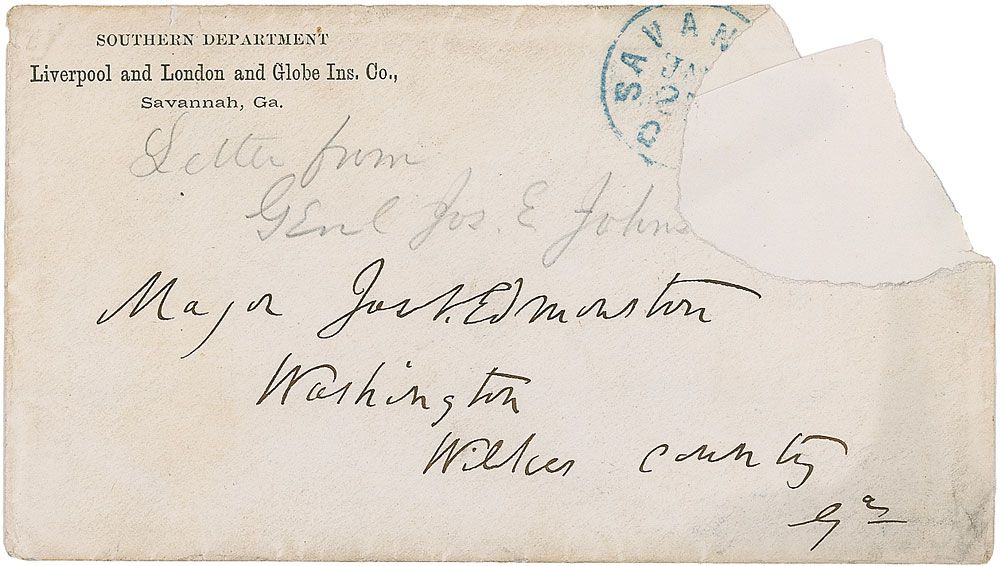 SOUTHERN DEPARTMENT
Liverpool and London and Globe Ins. Co.,
Savannah, Ga.
SAVAN
Letter from
Genl Jos. E Johns
Major Jos. Edmonston
Washington
Wilkes County
Ga